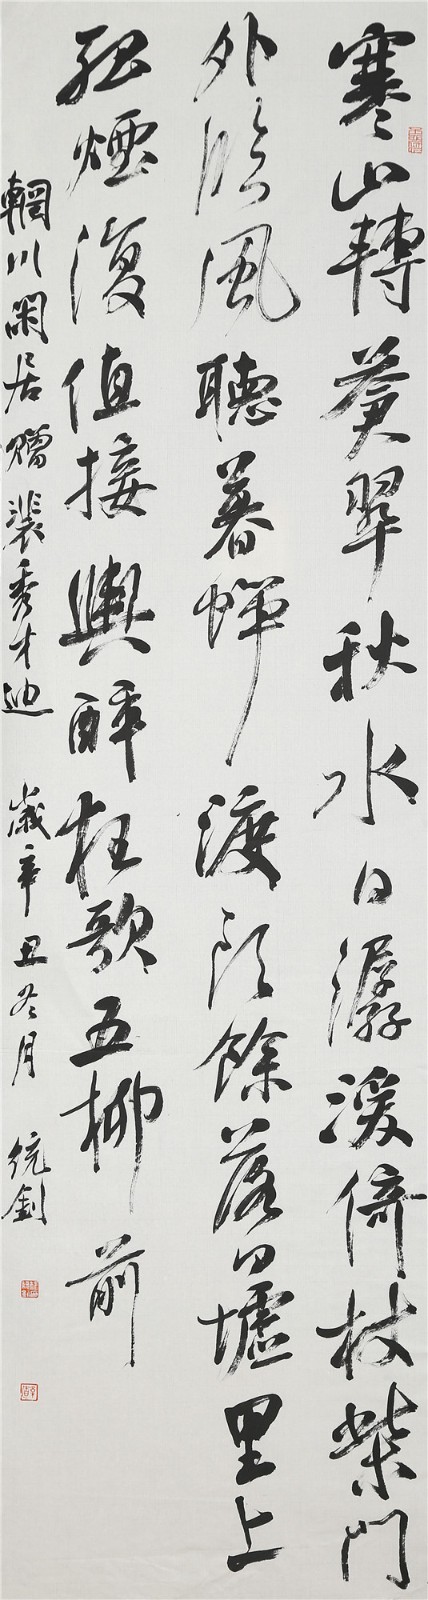 寒山轉蒼翠秋水日潺湲倚杖柴門
外臨風聽暮蟬渡頭餘落日墟里上
孤煙復值接輿醉狂歌五柳前
輞川閑居贈裴秀才迪 歲辛丑冬月 統釗